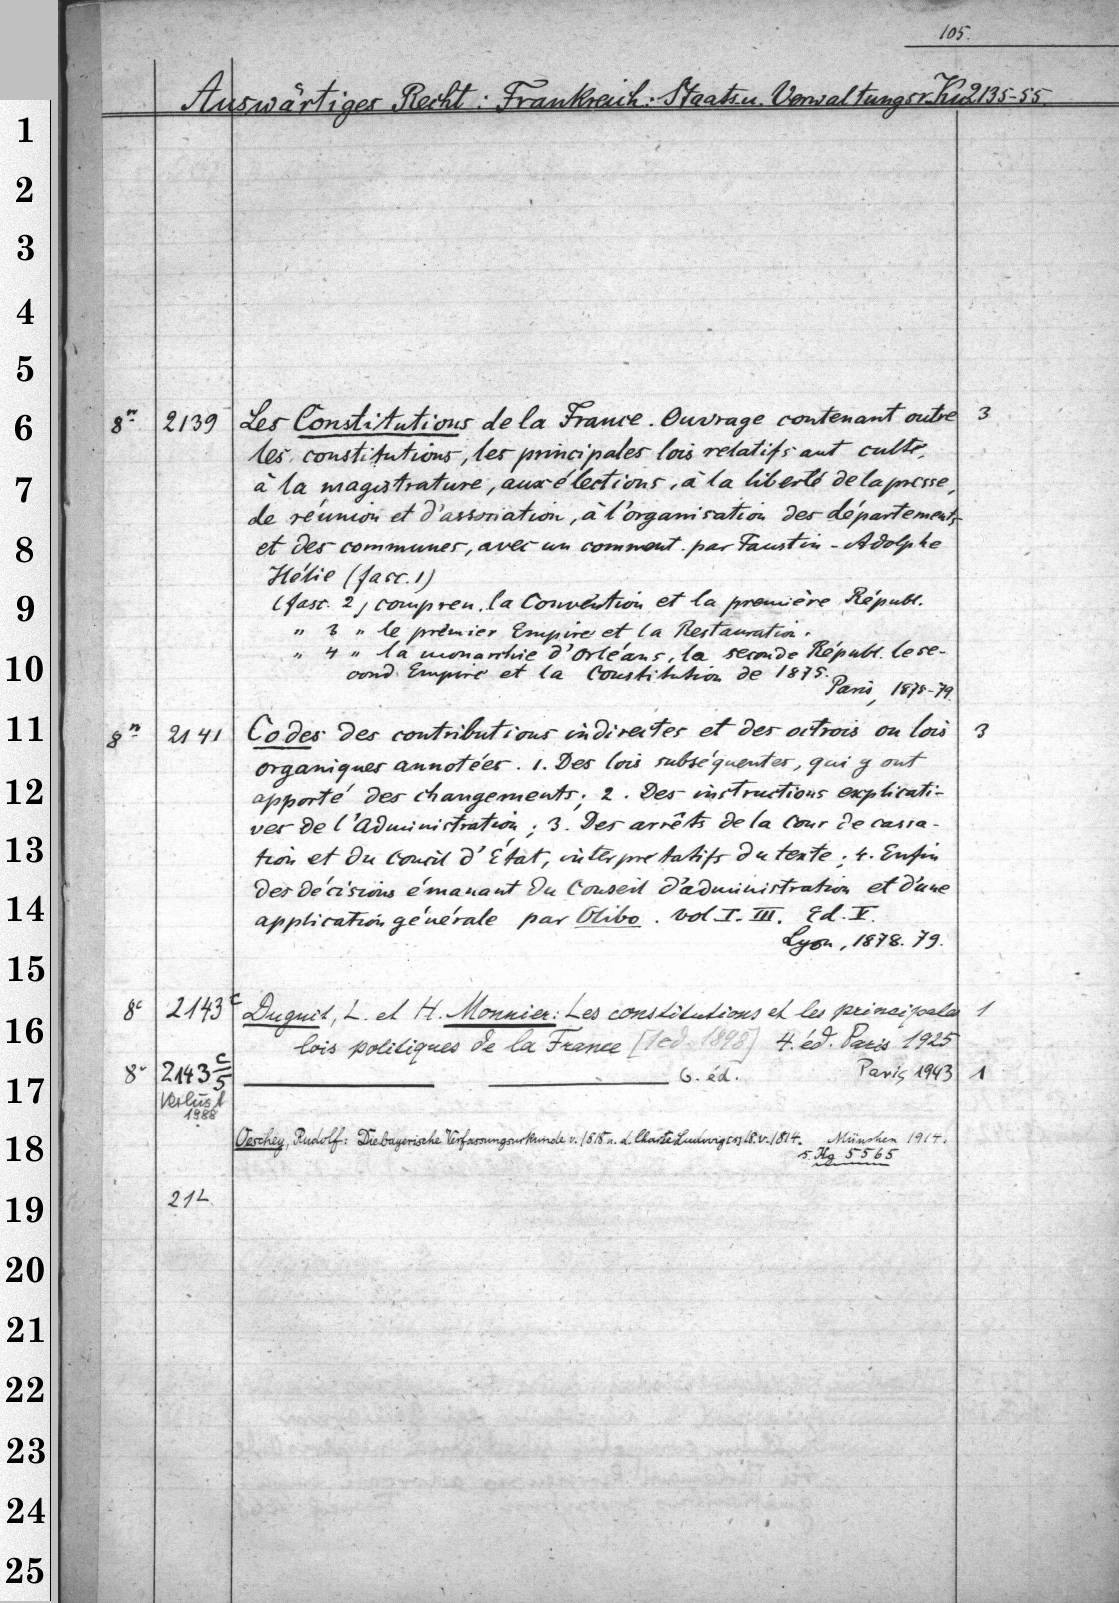 105.
Auswärtiges Recht: Frankreich: Staats u. Verwaltungsr. Ku 2135-55
1
2
3
4
5
6
7
8
9
10
11
12
13
14
15
16
17
18
19
20
21
22
23
24
25
8º 2139 Les Constitutions de la France. Ouvrage contenant outre 3
les constitutions, les principales lois relatifs aut culte,
à la magistrature, aux élections, à la liberté de la presse,
de réunion et d'association, à l'organisation des départements
et des communes, avec un comment. par Faustin-Adolphe
Hélie (fasc. 1)
(fasc. 2) compren. la Convention et la première Républ.
" 3 " le premier Empire et la Restauration.
" 4 " la monarchie d'Orléans, la seconde Républ. le se-
cond Empire et la Constitution de 1875.
Paris, 1875-79.
8º 2141 Codes des contributions indirectes et des octrois ou lois 3
organiques annotées. 1. Des lois subséquentes, qui y ont
apporté des changements; 2. Des instructions explicati-
ves de l'Administration; 3. Des arrêts de la Cour de cassa-
tion et du Conseil d'État, interprétatifs du texte; 4. Enfin
des décisions émanant du Conseil d'administration et d'une
application générale par Olibo. vol. I-III. Ed. V.
Lyon, 1878. 79.
8º 2143 c Duguit, L. et H. Monnier: Les constitutions et les principales 1
lois politiques de la France [1 éd. 1898] 4. éd. Paris 1925
8º 2143 c/5 6. éd. Paris 1943 1
Verlust
1988
Oeschey, Rudolf: Die bayerische Verfassungsurkunde v. 1818 u. d. Charte Ludwigs 18. v. 1814. München 1914.
s. Hg 5565
214